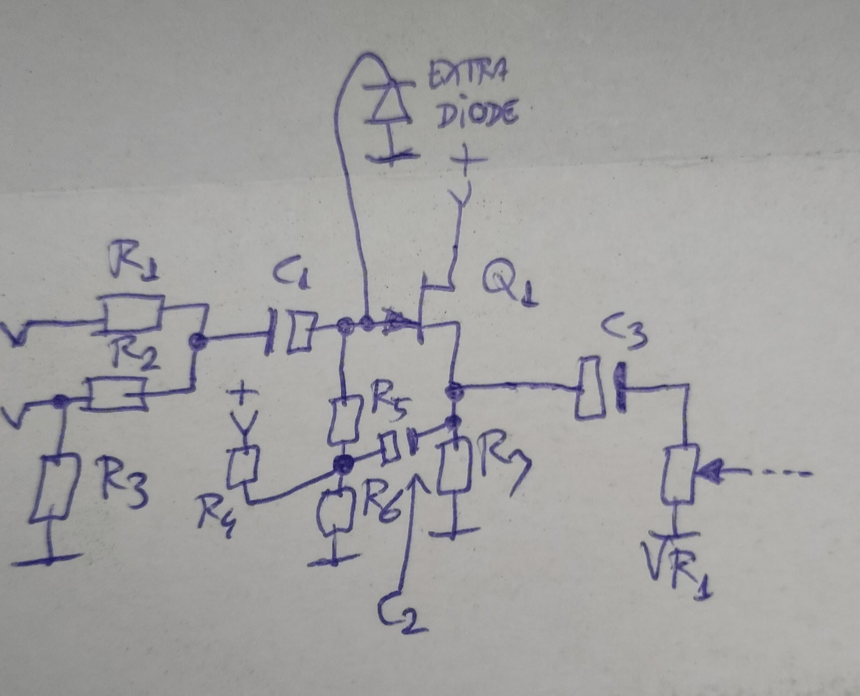 EXTRA
DiODE
+
R1
C1
Q1
R2
C3
+
R5
R3
R4
R6
R7
C2
VR1